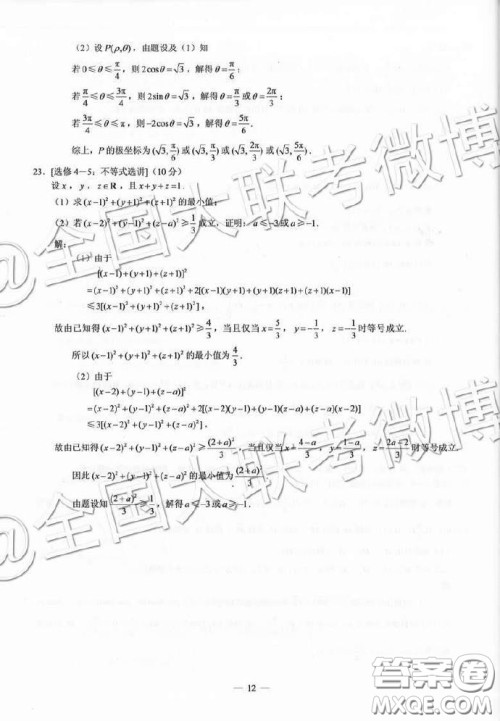 (2) 设 P(ρ,θ)，由题设及 (1) 知
若 0≤θ≤π/4，则 2cosθ=√3，解得 θ=π/6；
若 π/4≤θ≤3π/4，则 2sinθ=√3，解得 θ=π/3 或 θ=2π/3；
若 3π/4≤θ≤π，则 -2cosθ=√3，解得 θ=5π/6．
综上，P 的极坐标为 (√3, π/6) 或 (√3, π/3) 或 (√3, 2π/3) 或 (√3, 5π/6)．
23. [选修 4—5：不等式选讲] (10 分)
设 x，y，z∈R，且 x+y+z=1．
(1) 求 (x-1)²+(y+1)²+(z+1)² 的最小值；
(2) 若 (x-2)²+(y-1)²+(z-a)²≥1/3 成立，证明：a≤-3 或 a≥-1．
解：
(1) 由于
[(x-1)+(y+1)+(z+1)]²
=(x-1)²+(y+1)²+(z+1)²+2[(x-1)(y+1)+(y+1)(z+1)+(z+1)(x-1)]
≤3[(x-1)²+(y+1)²+(z+1)²]，
故由已知得 (x-1)²+(y+1)²+(z+1)²≥4/3，当且仅当 x=5/3，y=-1/3，z=-1/3 时等号成立．
所以 (x-1)²+(y+1)²+(z+1)² 的最小值为 4/3．
(2) 由于
[(x-2)+(y-1)+(z-a)]²
=(x-2)²+(y-1)²+(z-a)²+2[(x-2)(y-1)+(y-1)(z-a)+(z-a)(x-2)]
≤3[(x-2)²+(y-1)²+(z-a)²]，
故由已知得 (x-2)²+(y-1)²+(z-a)²≥(2+a)²/3，当且仅当 x=(4-a)/3，y=(1-a)/3，z=(2a-2)/3 时等号成立．
因此 (x-2)²+(y-1)²+(z-a)² 的最小值为 (2+a)²/3．
由题设知 (2+a)²/3≥1/3，解得 a≤-3 或 a≥-1．
@全国大联考微博
@全国大联考微博
— 12 —
答案圈
MXQE.COM